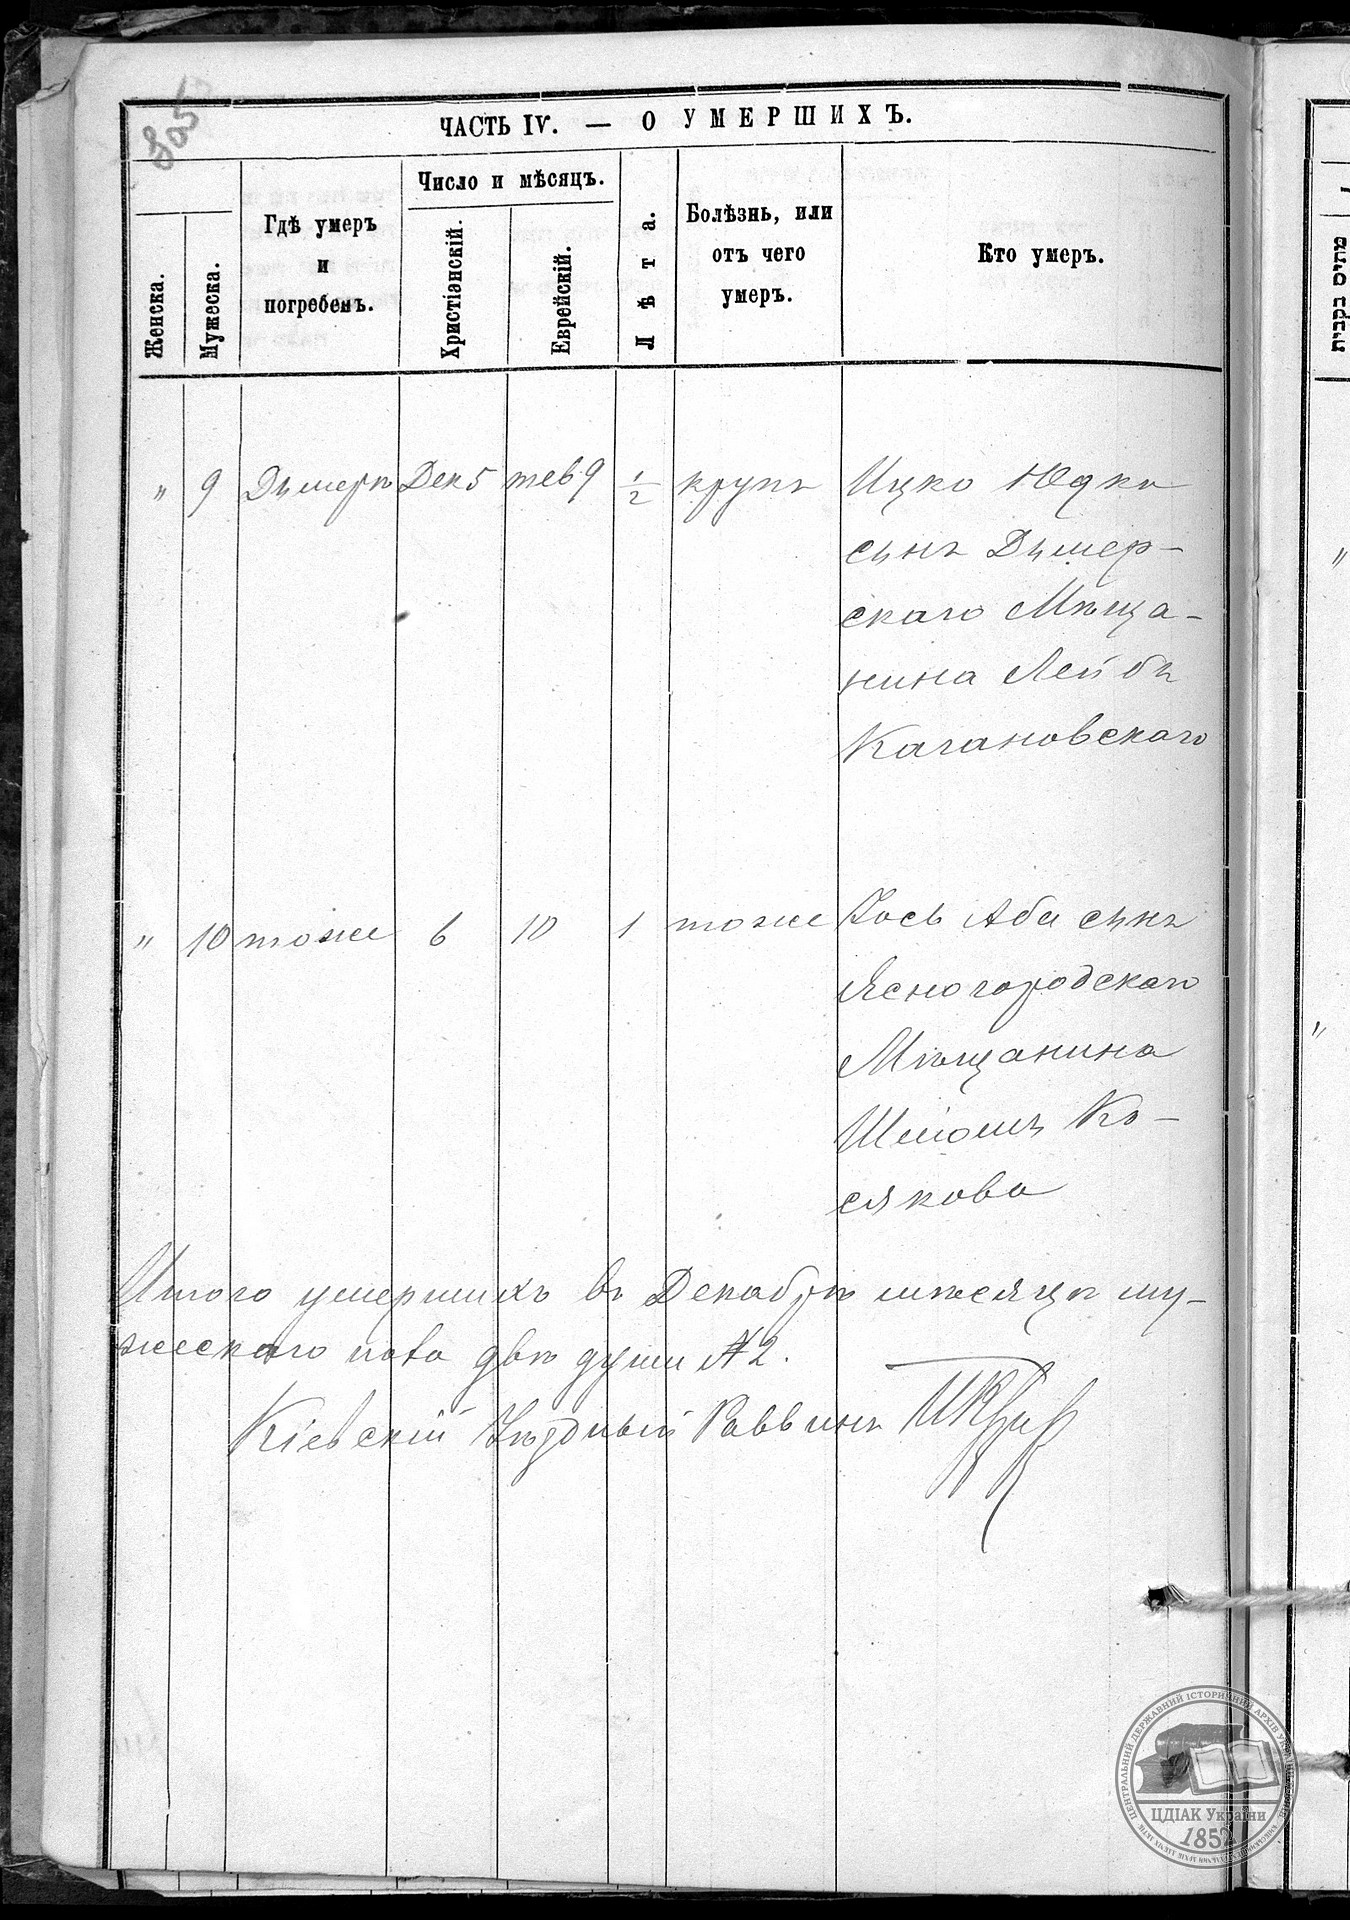 ЧАСТЬ IV. — О УМЕРШИХЪ.
Женска.
Мужеска.
Гдѣ умеръ
и
погребенъ.
Число и мѣсяцъ.
Христіанскій.
Еврейскій.
Лѣта.
Болѣзнь, или
отъ чего
умеръ.
Кто умеръ.
" 9 Дымеръ Дек 5 тев 9 1/2 крупъ Ицко Юдко
сынъ Дымер-
скаго Мѣща-
нина Лейбы
Кагановскаго
" 10 тоже 6 10 1 тоже Іось Аба сынъ
Ясногородскаго
Мѣщанина
Шліомы
сякова
Итого умершихъ въ Декабрѣ мѣсяцѣ му-
жескаго пола двѣ души № 2.
Кіевскій Уѣздный Раввинъ
ЦЕНТРАЛЬНИЙ ДЕРЖАВНИЙ ІСТОРИЧНИЙ АРХІВ УКРАЇНИ
ЦДІАК України
1852